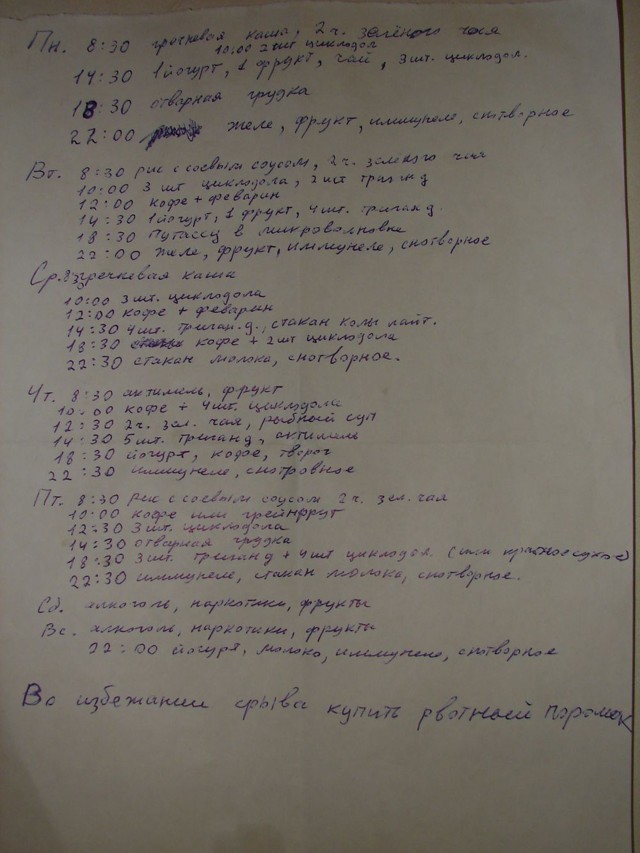 Пн. 8:30 гречневая каша, 2 ч. зелёного чая
10:00 2 шт циклодол
14:30 1 йогурт, 1 фрукт, чай, 3 шт. циклодол.
18:30 отварная грудка
22:00 желе, фрукт, иммунеле, снотворное
Вт. 8:30 рис с соевым соусом, 2 ч. зеленого чая
10:00 3 шт циклодола, 2 шт триган д
12:00 кофе + феварин
14:30 1 йогурт, 1 фрукт, 4 шт. триган д.
18:30 Путассу в микроволновке
22:00 желе, фрукт, иммунеле, снотворное
Ср. гречневая каша
10:00 3 шт. циклодола
12:00 кофе + феварин
14:30 4 шт. триган.д., стакан колы лайт.
18:30 кофе + 2 шт циклодола
22:30 стакан молока, снотворное.
Чт. 8:30 актимель, фрукт
10:00 кофе + 4 шт. циклодола
12:30 2 ч. зел. чая, рыбный суп
14:30 5 шт. триган д, актимель
18:30 йогурт, кофе, творог
22:30 иммунеле, снотровное
Пт. 8:30 рис с соевым соусом 2 ч. зел. чая
10:00 кофе или грейпфрут
12:30 3 шт. циклодола
14:30 отварная грудка
18:30 3 шт. триган д + 4 шт циклодол. (или красное сухое)
22:30 иммунеле, стакан молока, снотворное.
Сб. алкоголь, наркотики, фрукты
Вс. алкоголь, наркотики, фрукты
22:00 йогурт, молоко, иммунеле, снотворное
Во избежании срыва купить рвотный порошок